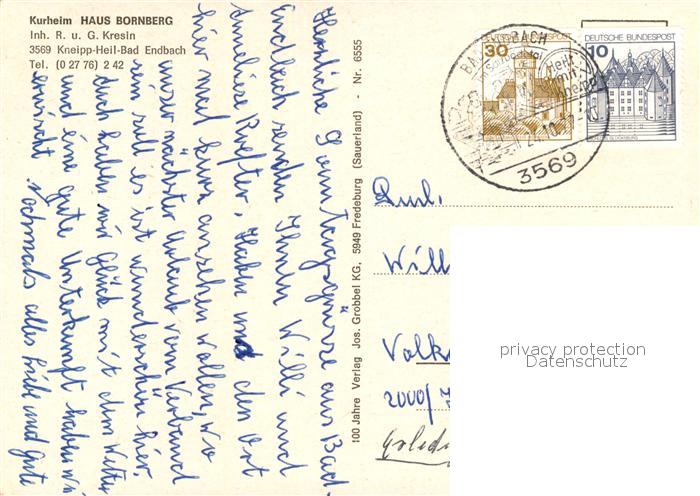 Kurheim HAUS BORNBERG
Inh. R. u. G. Kresin
3569 Kneipp-Heil-Bad Endbach
Tel. (0 27 76) 2 42
Herzliche Sonntagsgrüsse aus Bad-
Endbach senden Ihnen Willi und
Anneliese Haben uns den Ort
hier mal kurz ansehen wollen, wo
unser nächster Urlaub vom Verband
sein soll es ist wunderschön hier.
Auch haben wir Glück mit dem Wetter
und eine gute Unterkunft haben wir
erwischt. nochmals alles Liebe und Gute
100 Jahre Verlag Jos. Grobbel KG, 5949 Fredeburg (Sauerland) - Nr. 6555
30
DEUTSCHE BUNDESPOST
10
DEUTSCHE BUNDESPOST
3569
Will
Volks
2000/
privacy protection
Datenschutz